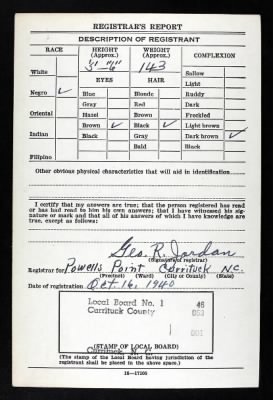 REGISTRAR'S REPORT
DESCRIPTION OF REGISTRANT
RACE HEIGHT (Approx.) WEIGHT (Approx.) COMPLEXION
5' "6" 143
White Sallow
EYES HAIR Light
Negro ✓ Blue Blonde Ruddy
Gray Red Dark
Oriental Hazel Brown Freckled
Brown ✓ Black ✓ Light brown
Indian Black Gray Dark brown ✓
Bald Black
Filipino
Other obvious physical characteristics that will aid in identification
I certify that my answers are true; that the person registered has read
or has had read to him his own answers; that I have witnessed his sig-
nature or mark and that all of his answers of which I have knowledge
are true, except as follows:
Geo. R. Jordan
(Signature of registrar)
Registrar for Powells Point Currituck N.C.
(Precinct) (Ward) (City or County) (State)
Date of registration Oct 16, 1940
Local Board No. 1 46
Currituck County 053
1
001
(STAMP OF LOCAL BOARD)
Currituck, N. C.
(The stamp of the Local Board having jurisdiction of the
registrant shall be placed in the above space.)
16—17105